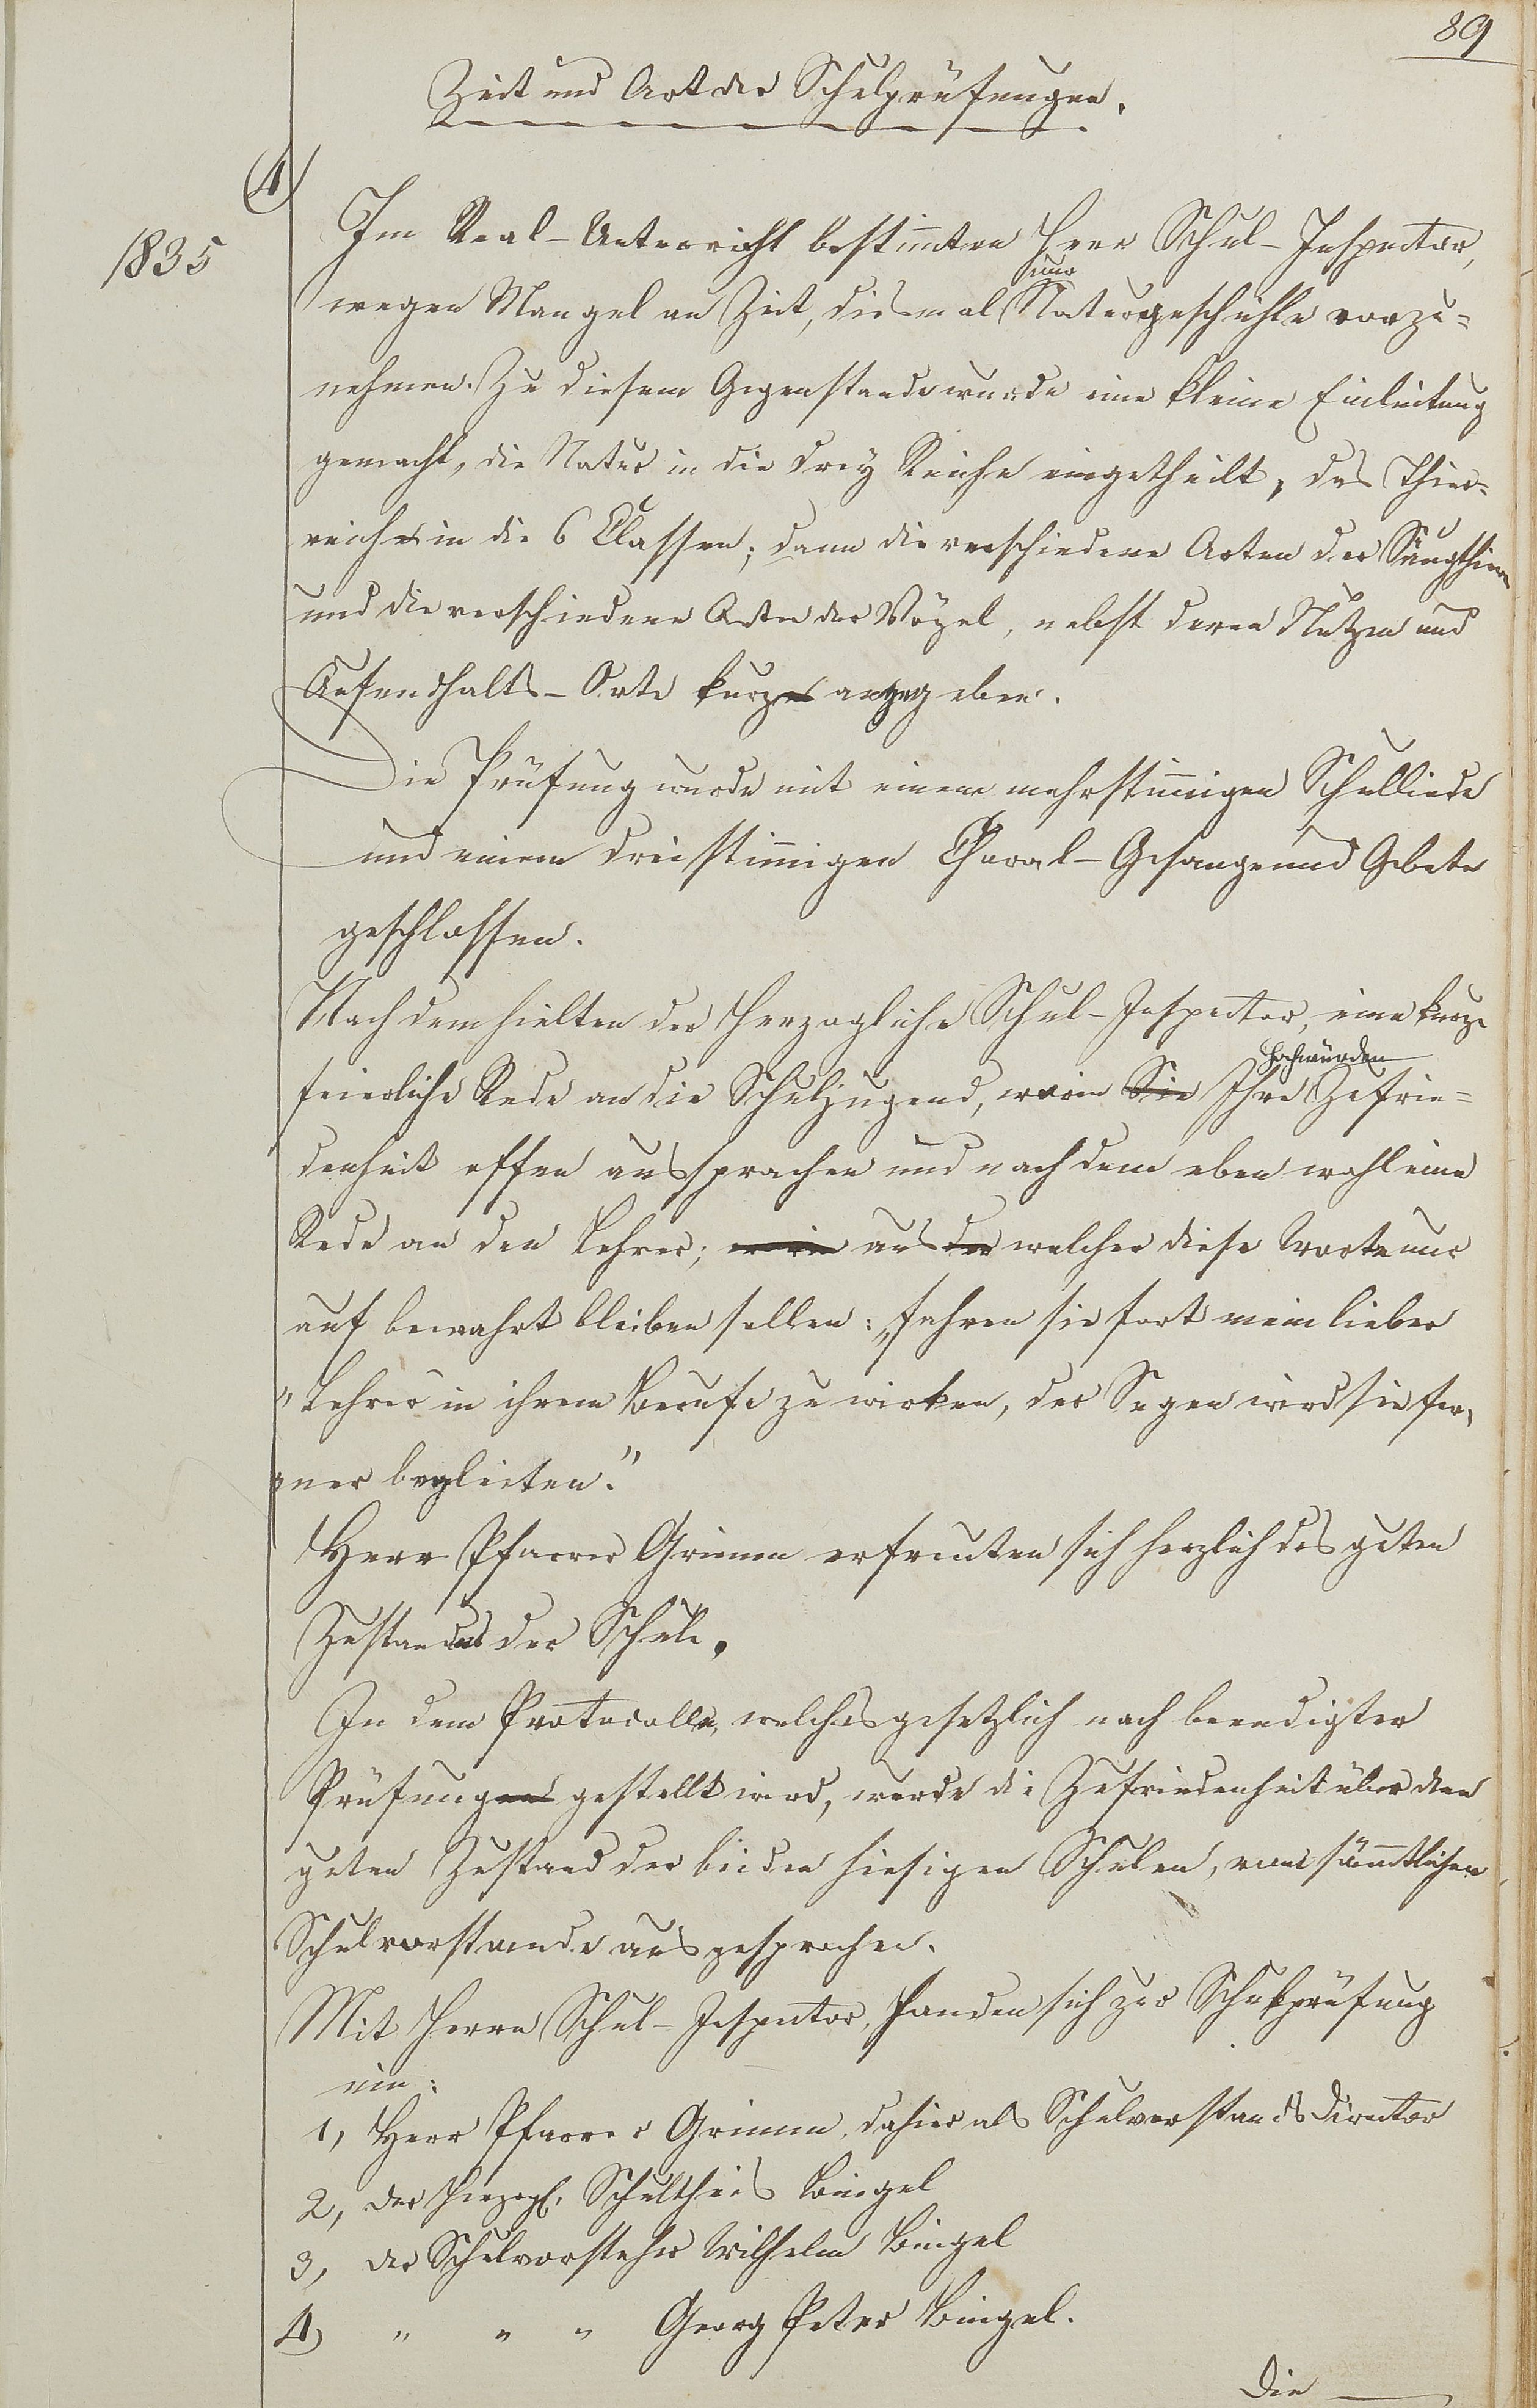 89
Zeit und Art der Schulprüfungen.
(4)
1835
Im Real-Unterricht bestimten Herr Schul-Inspector,
wegen Mangel an Zeit, diesmal nur Naturgeschichte vorzu=
nehmen. Zu diesem Gegenstande wurde eine kleine Einleitung
gemacht, die Natur in die drey Reiche eingetheilt, das Thier=
reich in die 6 Classen; dann die verschiedene Arten der Säugthiere
und die verschiedene Arten der Vögel, nebst deren Nutzen und
Aufenthalts-Orte kurz angegeben.
Die Prüfung wurde mit einem mehrstimigen Schulliede
und einem dreistimigen Choral-Gesange und Gebete
geschlossen.
Nach dem hielten der Herzogliche Schul-Inspector, eine kurze
feierliche Rede an die Schuljugend, worin Sie Ihre Hochwürden Zufrie=
denheit offen aussprachen und nach dem eben wohl eine
Rede an den Lehrer; aus der welcher diese Worte nur
auf bewahrt bleiben sollen: „fahren sie fort mein lieber
„Lehrer in ihrem Berufe zu wirken, der Segen wird sie fer„
„ner begleiten."
Herr Pfarrer Grimm erfreuten sich herzlich des guten
Zustandes der Schule.
In dem Protocolle, welches gesetzlich nach beendigter
Prüfung gestellt wird, wurde die Zufriedenheit über den
guten Zustand der beiden hiesigen Schulen, vom sämmtlichen
Schulvorstande ausgesprochen.
Mit Herrn Schul-Inspector, fanden sich zur Schulprüfung
ein:
1, Herr Pfarrer Grimm, dahier als Schulvorstands Director
2, der Herzogl. Schultheis Bingel
3, der Schulvorsteher Wilhelm Bingel
4, " " " Georg Peter Bingel.
Die